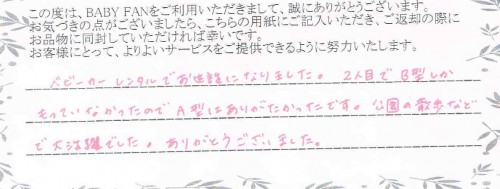 この度は、BABY FANをご利用いただきまして、誠にありがとうございます。
お気づきの点がございましたら、こちらの用紙にご記入いただき、ご返却の際に
お品物に同封していただければ幸いです。
お客様にとって、よりよいサービスをご提供できるように努力いたします。
ベビーカーレンタルでお世話になりました。2人目でB型しか
もっていなかったのでA型はありがたかったです。公園の散歩など
で大活躍でした。ありがとうございました。